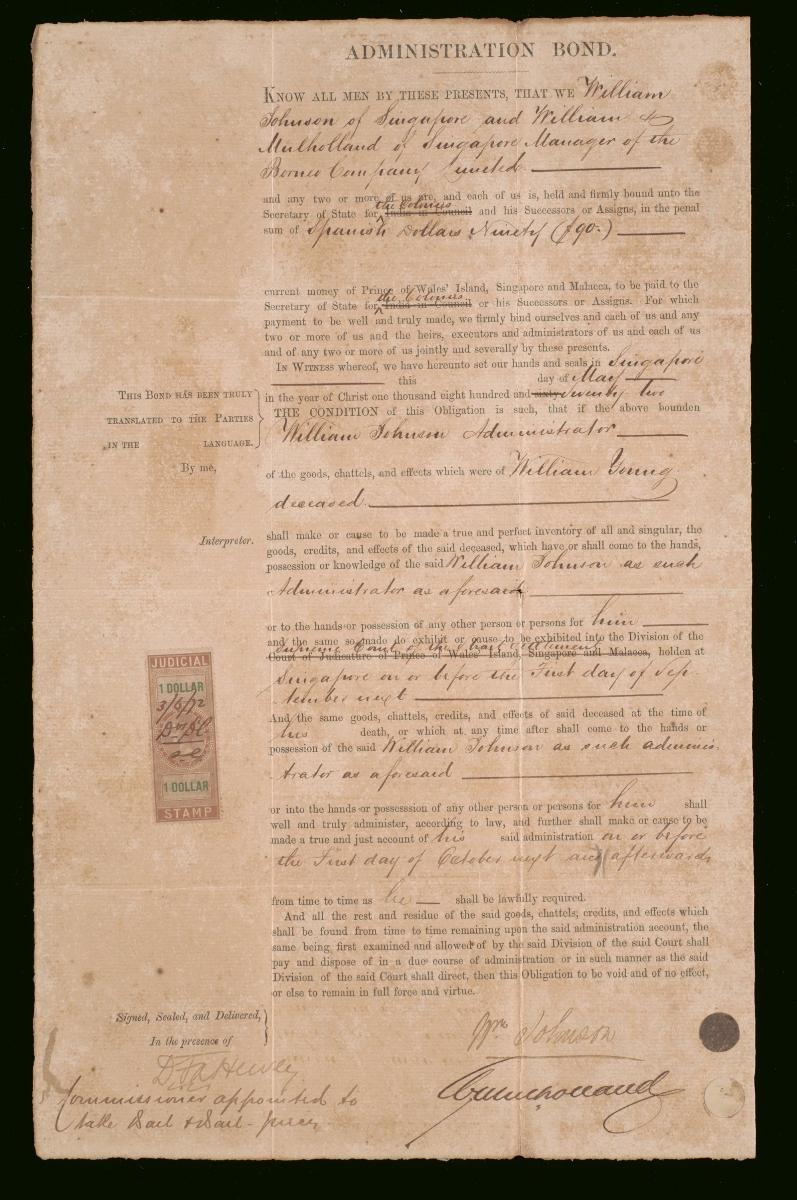 ADMINISTRATION BOND.
KNOW ALL MEN BY THESE PRESENTS, THAT WE William
Johnson of Singapore and William
Mulholland of Singapore Manager of the
Borneo Company Limited
and any two or more of us are, and each of us is, held and firmly bound unto the
the Colonies
Secretary of State for India in Council and his Successors or Assigns, in the penal
sum of Spanish Dollars Ninety ($90.)
current money of Prince of Wales' Island, Singapore and Malacca, to be paid to the
the Colonies
Secretary of State for India in Council or his Successors or Assigns. For which
payment to be well and truly made, we firmly bind ourselves and each of us and any
two or more of us and the heirs, executors and administrators of us and each of us
and of any two or more of us jointly and severally by these presents.
IN WITNESS whereof, we have hereunto set our hands and seals in Singapore
this day of May
in the year of Christ one thousand eight hundred and sixty seventy two
THE CONDITION of this Obligation is such, that if the above bounden
William Johnson Administrator
THIS BOND HAS BEEN TRULY
TRANSLATED TO THE PARTIES
IN THE LANGUAGE.
By me,
Interpreter.
of the goods, chattels, and effects which were of William Young
deceased.
shall make or cause to be made a true and perfect inventory of all and singular, the
goods, credits, and effects of the said deceased, which have or shall come to the hands,
possession or knowledge of the said William Johnson as such
Administrator as aforesaid
or to the hands or possession of any other person or persons for him
and the same so made do exhibit or cause to be exhibited into the Division of the
Supreme Court of the Straits Settlements
Court of Judicature of Prince of Wales' Island, Singapore and Malacca, holden at
Singapore on or before the First day of Sep-
tember next
And the same goods, chattels, credits, and effects of said deceased at the time of
his death, or which at any time after shall come to the hands or
possession of the said William Johnson as such adminis-
trator as aforesaid
or into the hands or possesssion of any other person or persons for him shall
well and truly administer, according to law, and further shall make or cause to be
made a true and just account of his said administration on or before
the First day of October next and afterwards
from time to time as he shall be lawfully required.
And all the rest and residue of the said goods, chattels, credits, and effects which
shall be found from time to time remaining upon the said administration account, the
same being first examined and allowed of by the said Division of the said Court shall
pay and dispose of in a due course of administration or in such manner as the said
Division of the said Court shall direct, then this Obligation to be void and of no effect,
or else to remain in full force and virtue.
JUDICIAL
1 DOLLAR
3/5/72
1 DOLLAR
STAMP
Signed, Sealed, and Delivered,
In the presence of
Commissioner appointed to
take Bail & Bail-
Wm Johnson
Mulholland